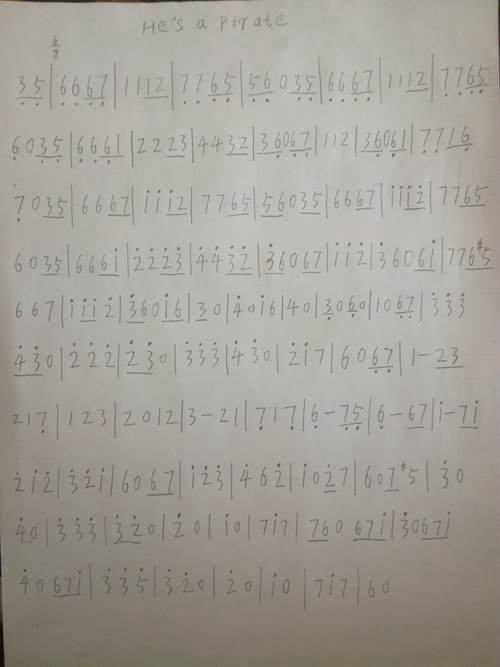 He's a Pirate
6/8
35|6667|1112|7765|56035|6667|1112|7765|
6035|6661|2223|4432|36067|112|36061|7716|
7035|6667|1112|7765|56035|6667|1112|7765
6035|6661|2223|4432|36067|112|36061|776#5
667|1112|36016|30|4016|40|3060|1067|333
430|222|230|333|430|217|6067|1–23
217|123|2012|3–21|717|6–75|6–67|1–71
212|321|6067|123|462|1027|607#5|30
40|333|320|20|10|717|760 671|30671
40671|335|320|20|10|717|60